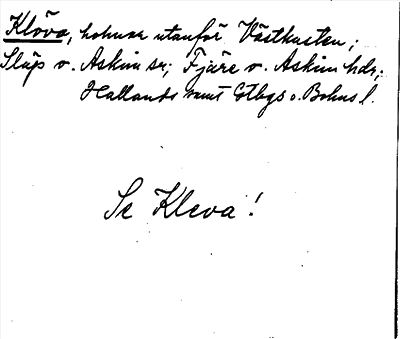 Klöva, holmar utanför Västkusten;
Släp o. Askim sr; Fjäre o. Askim hdr;
Hallands samt Gtbgs o. Bohus l.
Se Kleva!